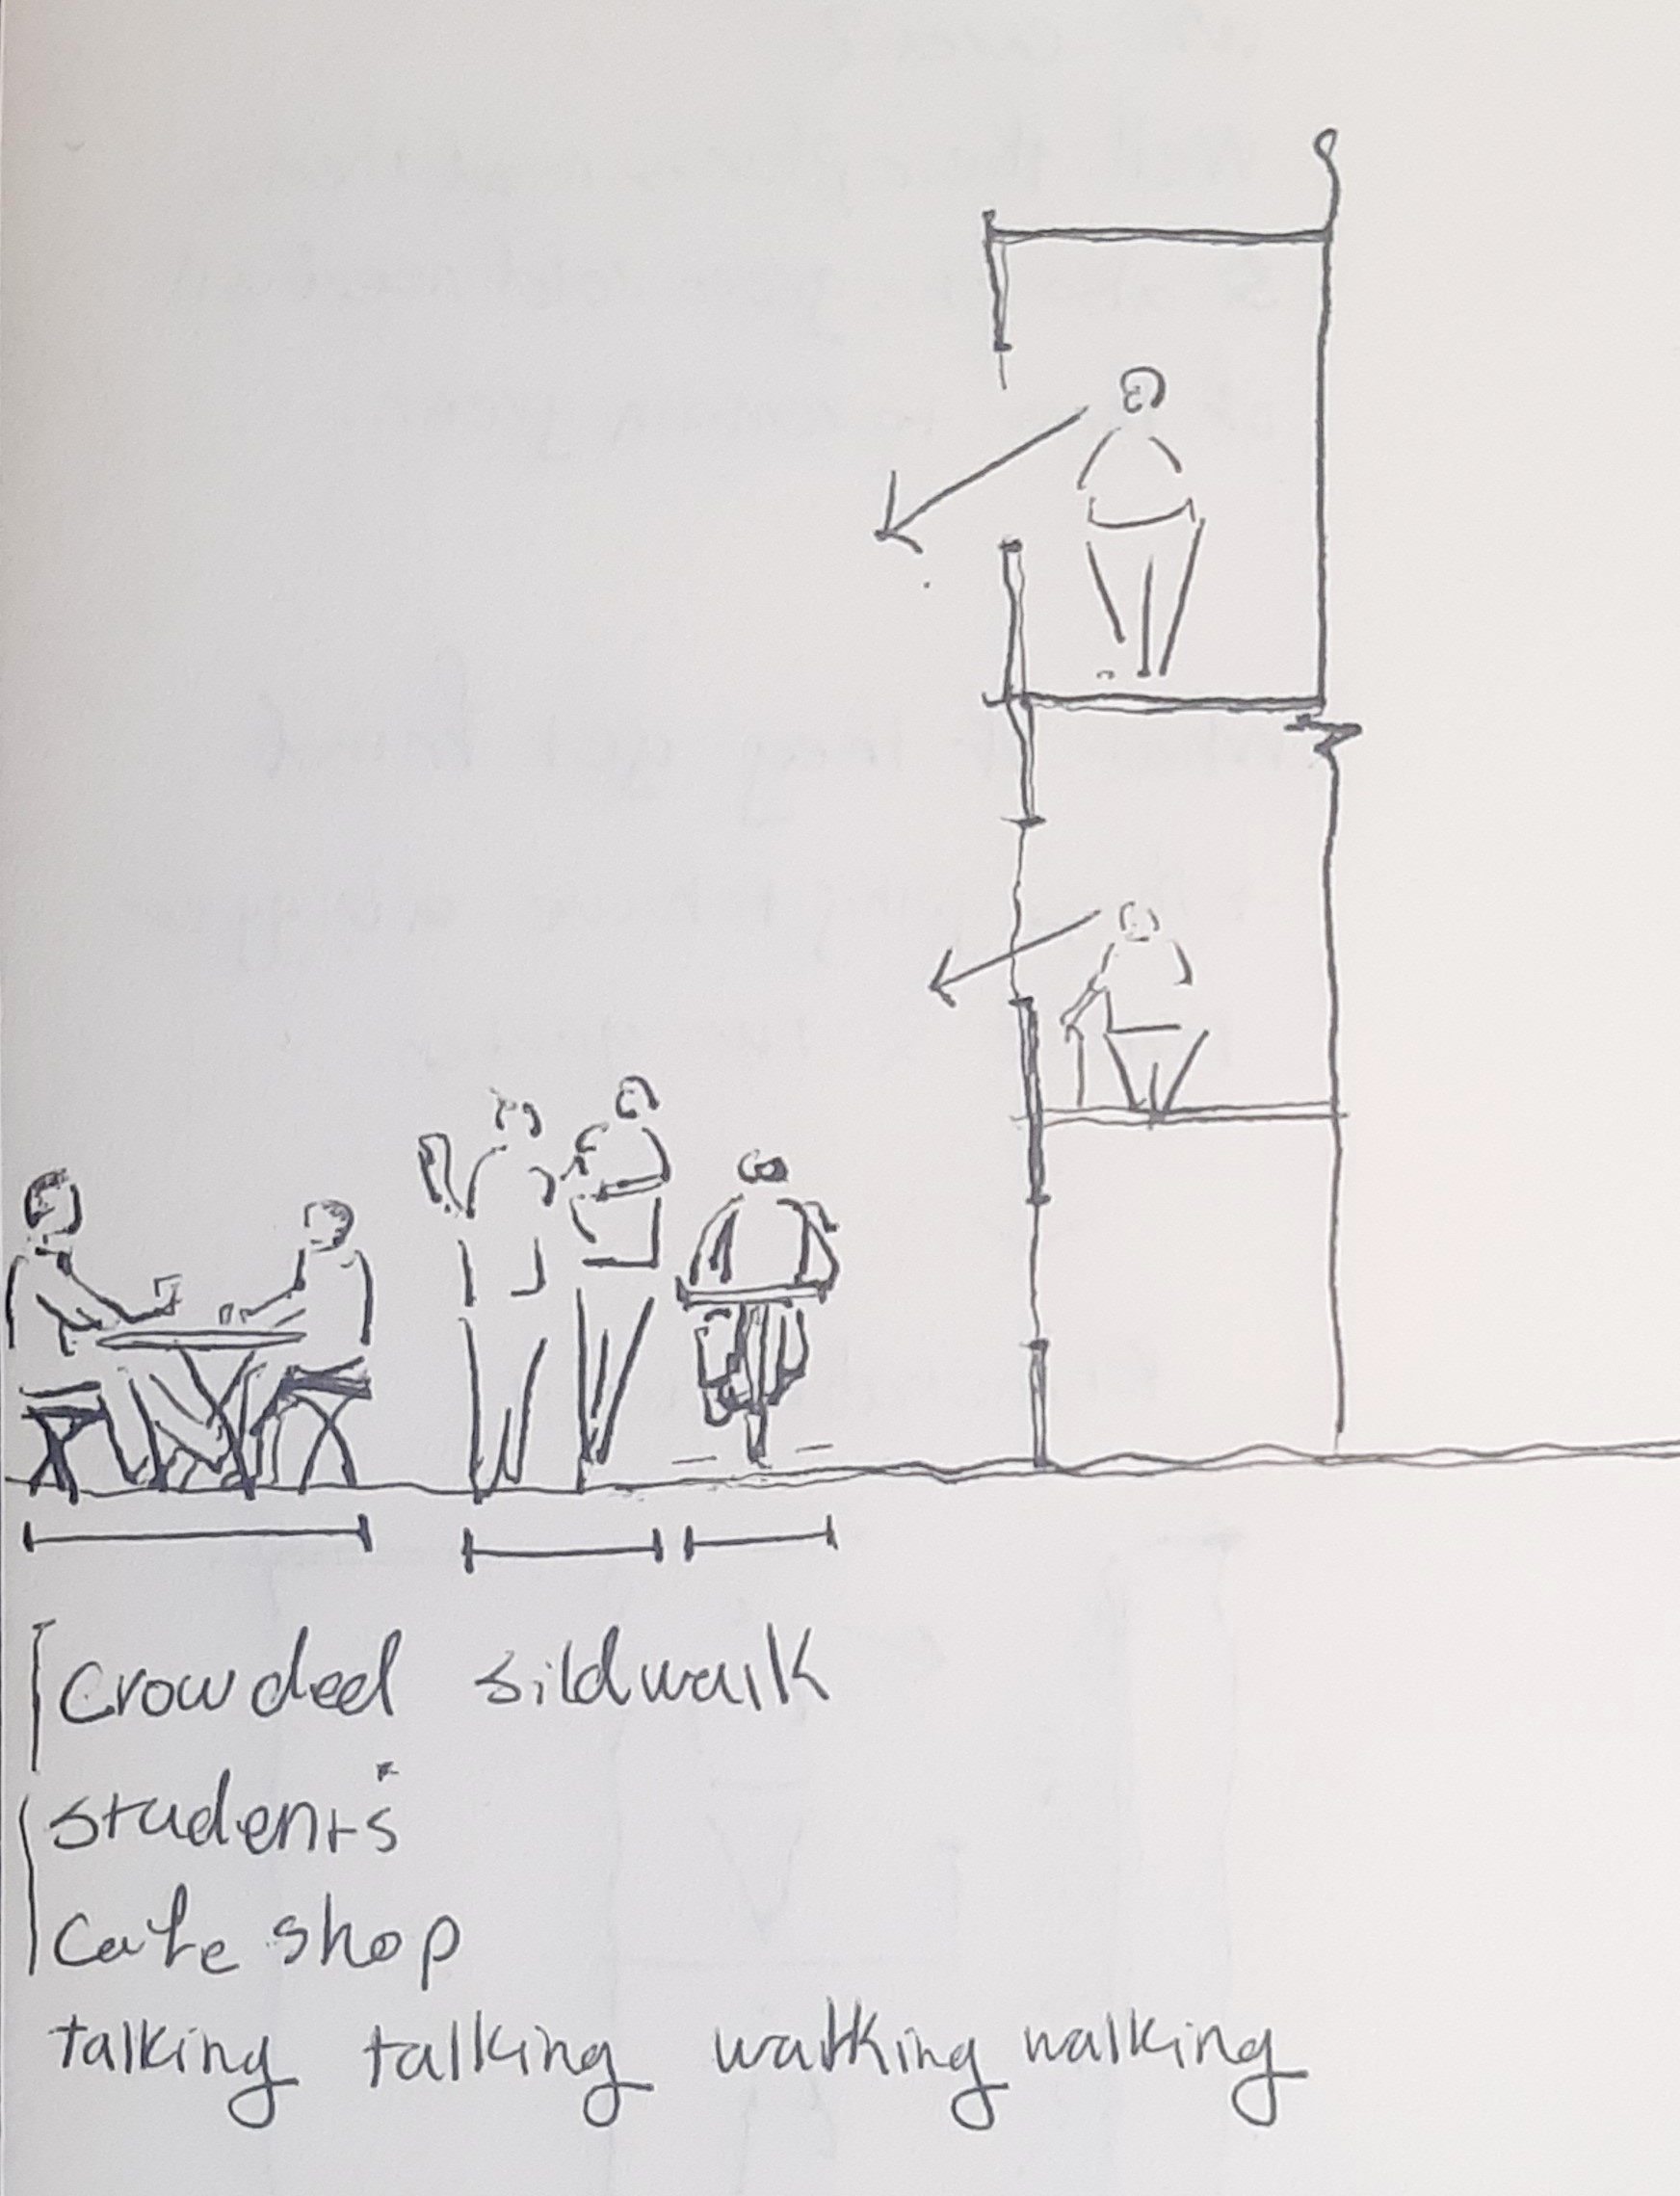 Crowded sildwalk
students
Cafe shop
talking talking walking walking